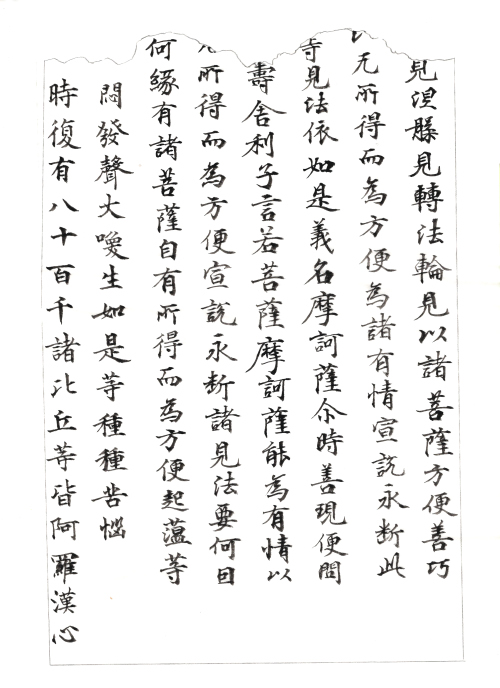 見涅槃見轉法輪見以諸菩薩方便善巧
以无所得而為方便為諸有情宣說永断此
等見法依如是義名摩訶薩尒時善現便問
壽舍利子言若菩薩摩訶薩能為有情以
无所得而為方便宣說永断諸見法要何因
何緣有諸菩薩自有所得而為方便起薀等
悶發聲大喚生如是等種種苦惱
時復有八十百千諸比丘等皆阿羅漢心